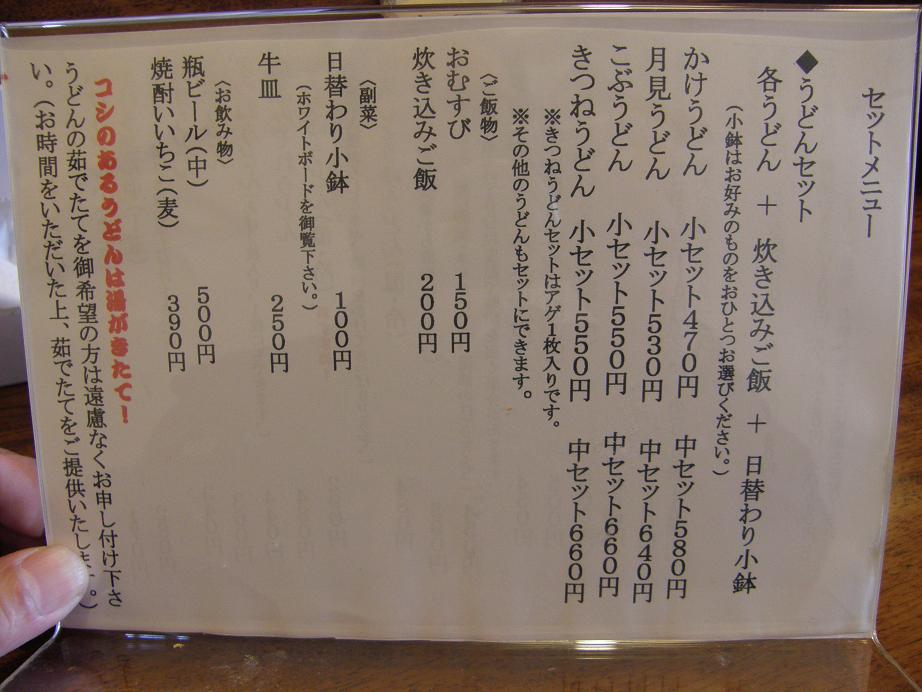 セットメニュー
◆うどんセット
各うどん ＋ 炊き込みご飯 ＋ 日替わり小鉢
（小鉢はお好みのものをおひとつお選びください。）
かけうどん 小セット４７０円 中セット５８０円
月見うどん 小セット５３０円 中セット６４０円
こぶうどん 小セット５５０円 中セット６６０円
きつねうどん 小セット５５０円 中セット６６０円
※きつねうどんセットはアゲ１枚入りです。
※その他のうどんもセットにできます。
〈ご飯物〉
おむすび １５０円
炊き込みご飯 ２００円
〈副菜〉
日替わり小鉢 １００円
（ホワイトボードを御覧下さい。）
牛皿 ２５０円
〈お飲み物〉
瓶ビール（中） ５００円
焼酎いいちこ（麦） ３９０円
コシのあるうどんは湯がきたて！
うどんの茹でたてを御希望の方は遠慮なくお申し付け下さ
い。（お時間をいただいた上、茹でたてをご提供いたします。）